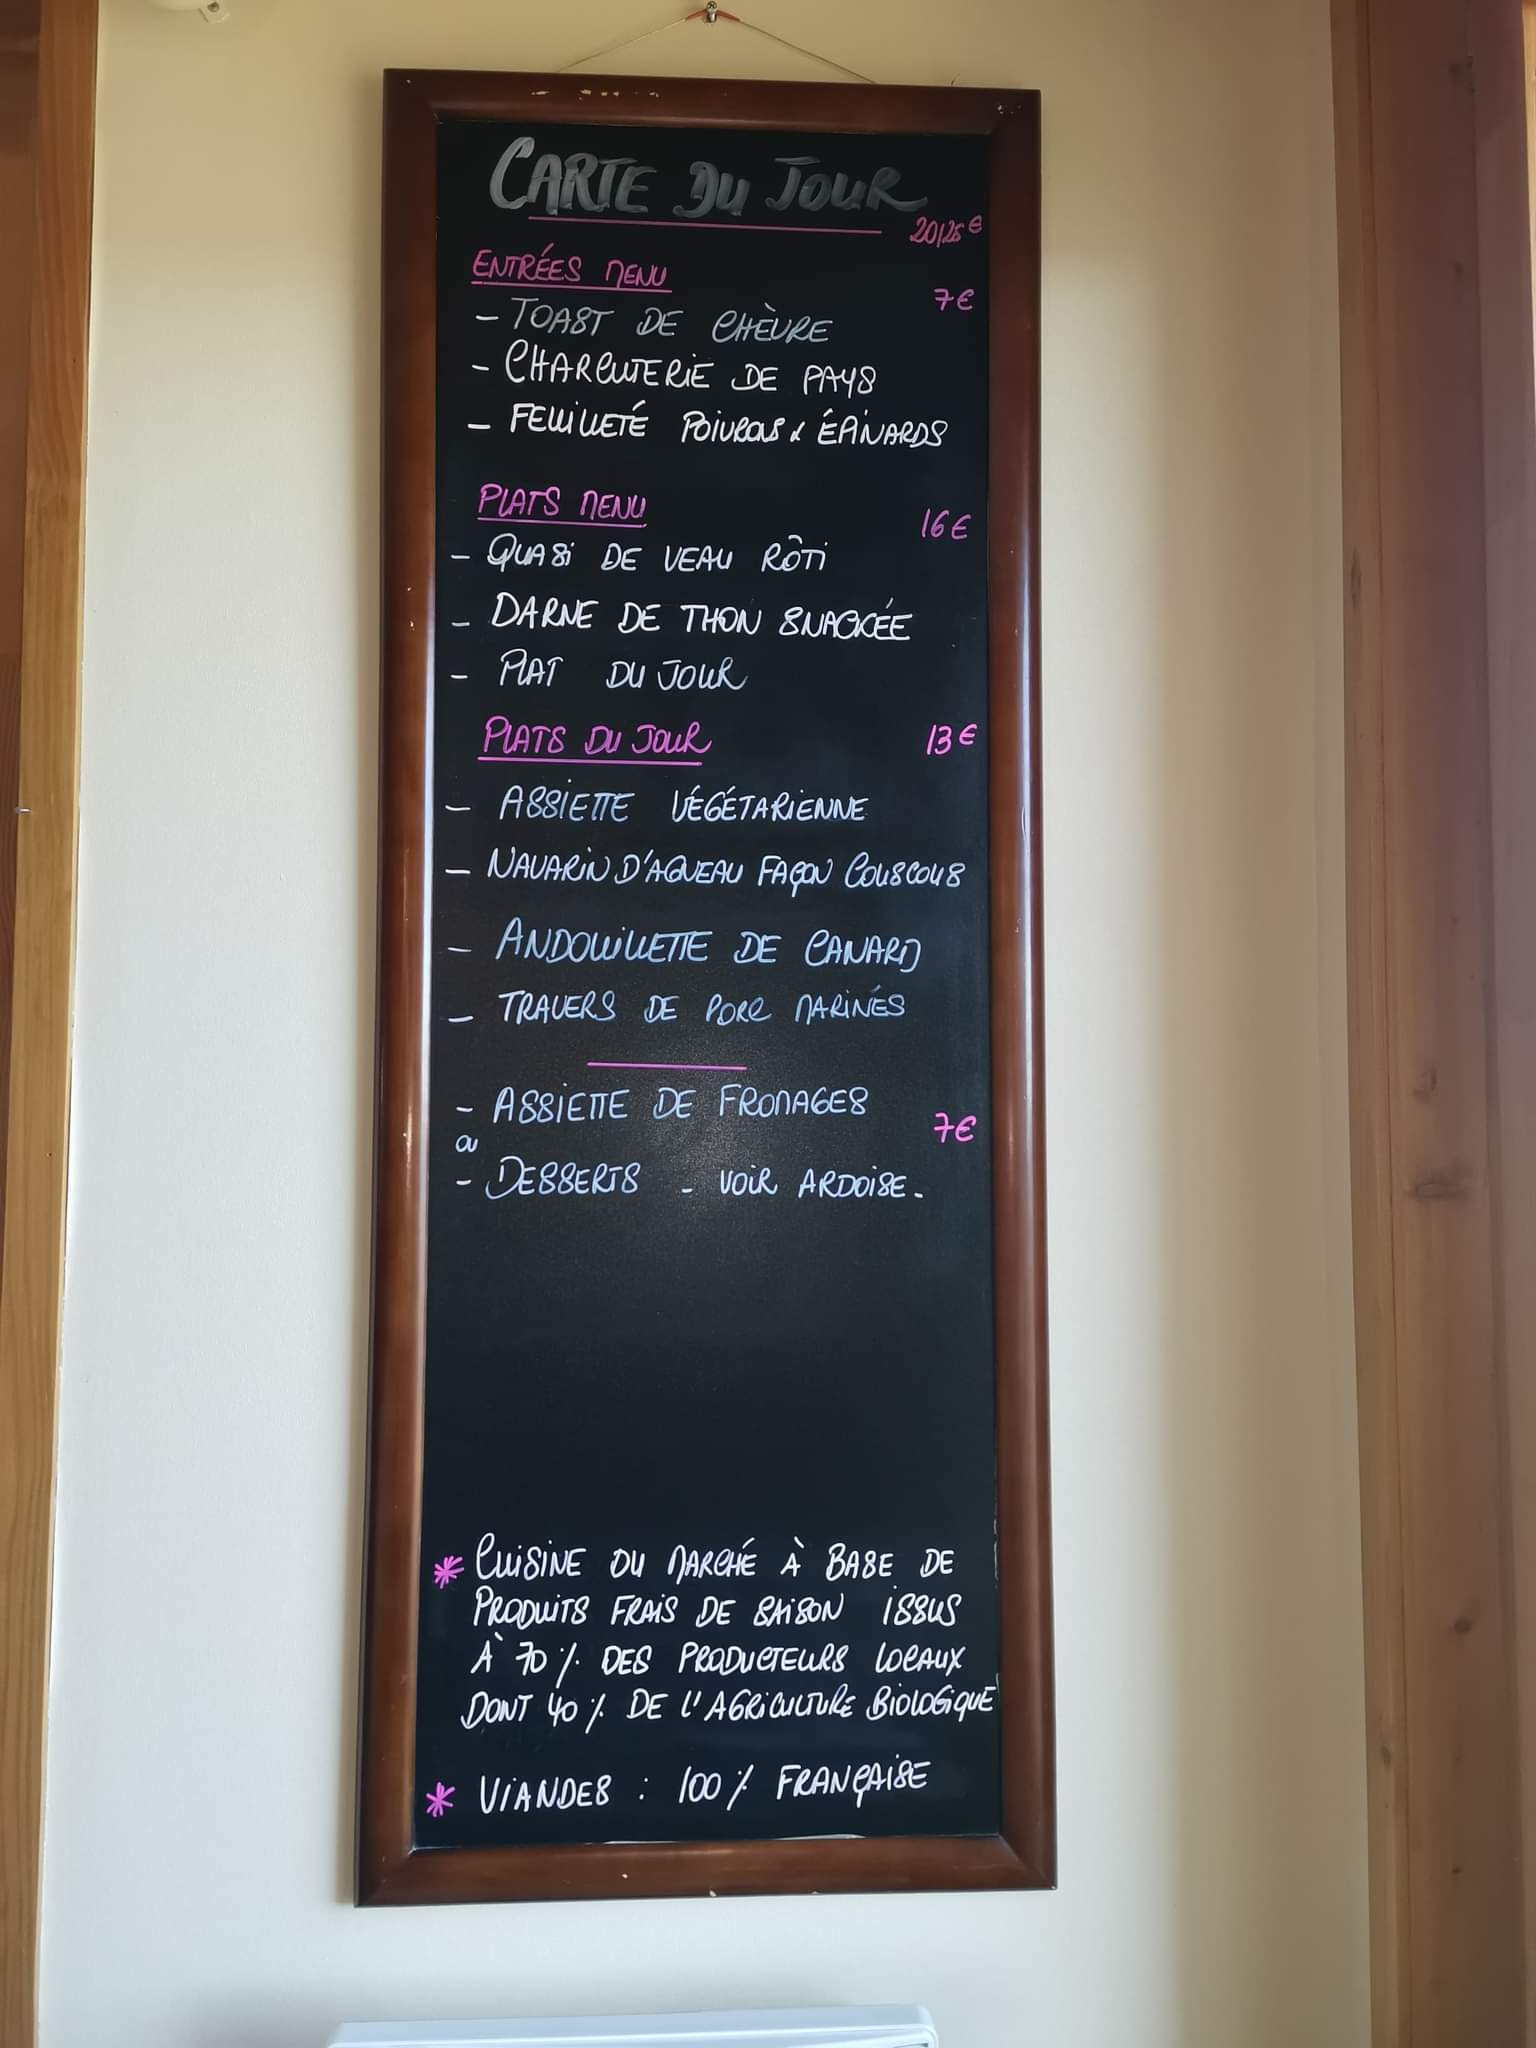 CARTE DU JOUR
20/25€
ENTRÉES MENU
7€
- TOAST DE CHÈVRE
- CHARCUTERIE DE PAYS
- FEUILLETÉ POIVRONS & ÉPINARDS
PLATS MENU
16€
- QUASI DE VEAU RÔTI
- DARNE DE THON SNACKÉE
- PLAT DU JOUR
PLATS DU JOUR 13€
- ASSIETTE VÉGÉTARIENNE
- NAVARIN D'AGNEAU FAÇON COUSCOUS
- ANDOUILLETTE DE CANARD
- TRAVERS DE PORC MARINÉS
- ASSIETTE DE FROMAGES
7€
ou
- DESSERTS - VOIR ARDOISE.
* CUISINE DU MARCHÉ À BASE DE
PRODUITS FRAIS DE SAISON ISSUS
À 70% DES PRODUCTEURS LOCAUX
DONT 40% DE L'AGRICULTURE BIOLOGIQUE
* VIANDES : 100% FRANÇAISE